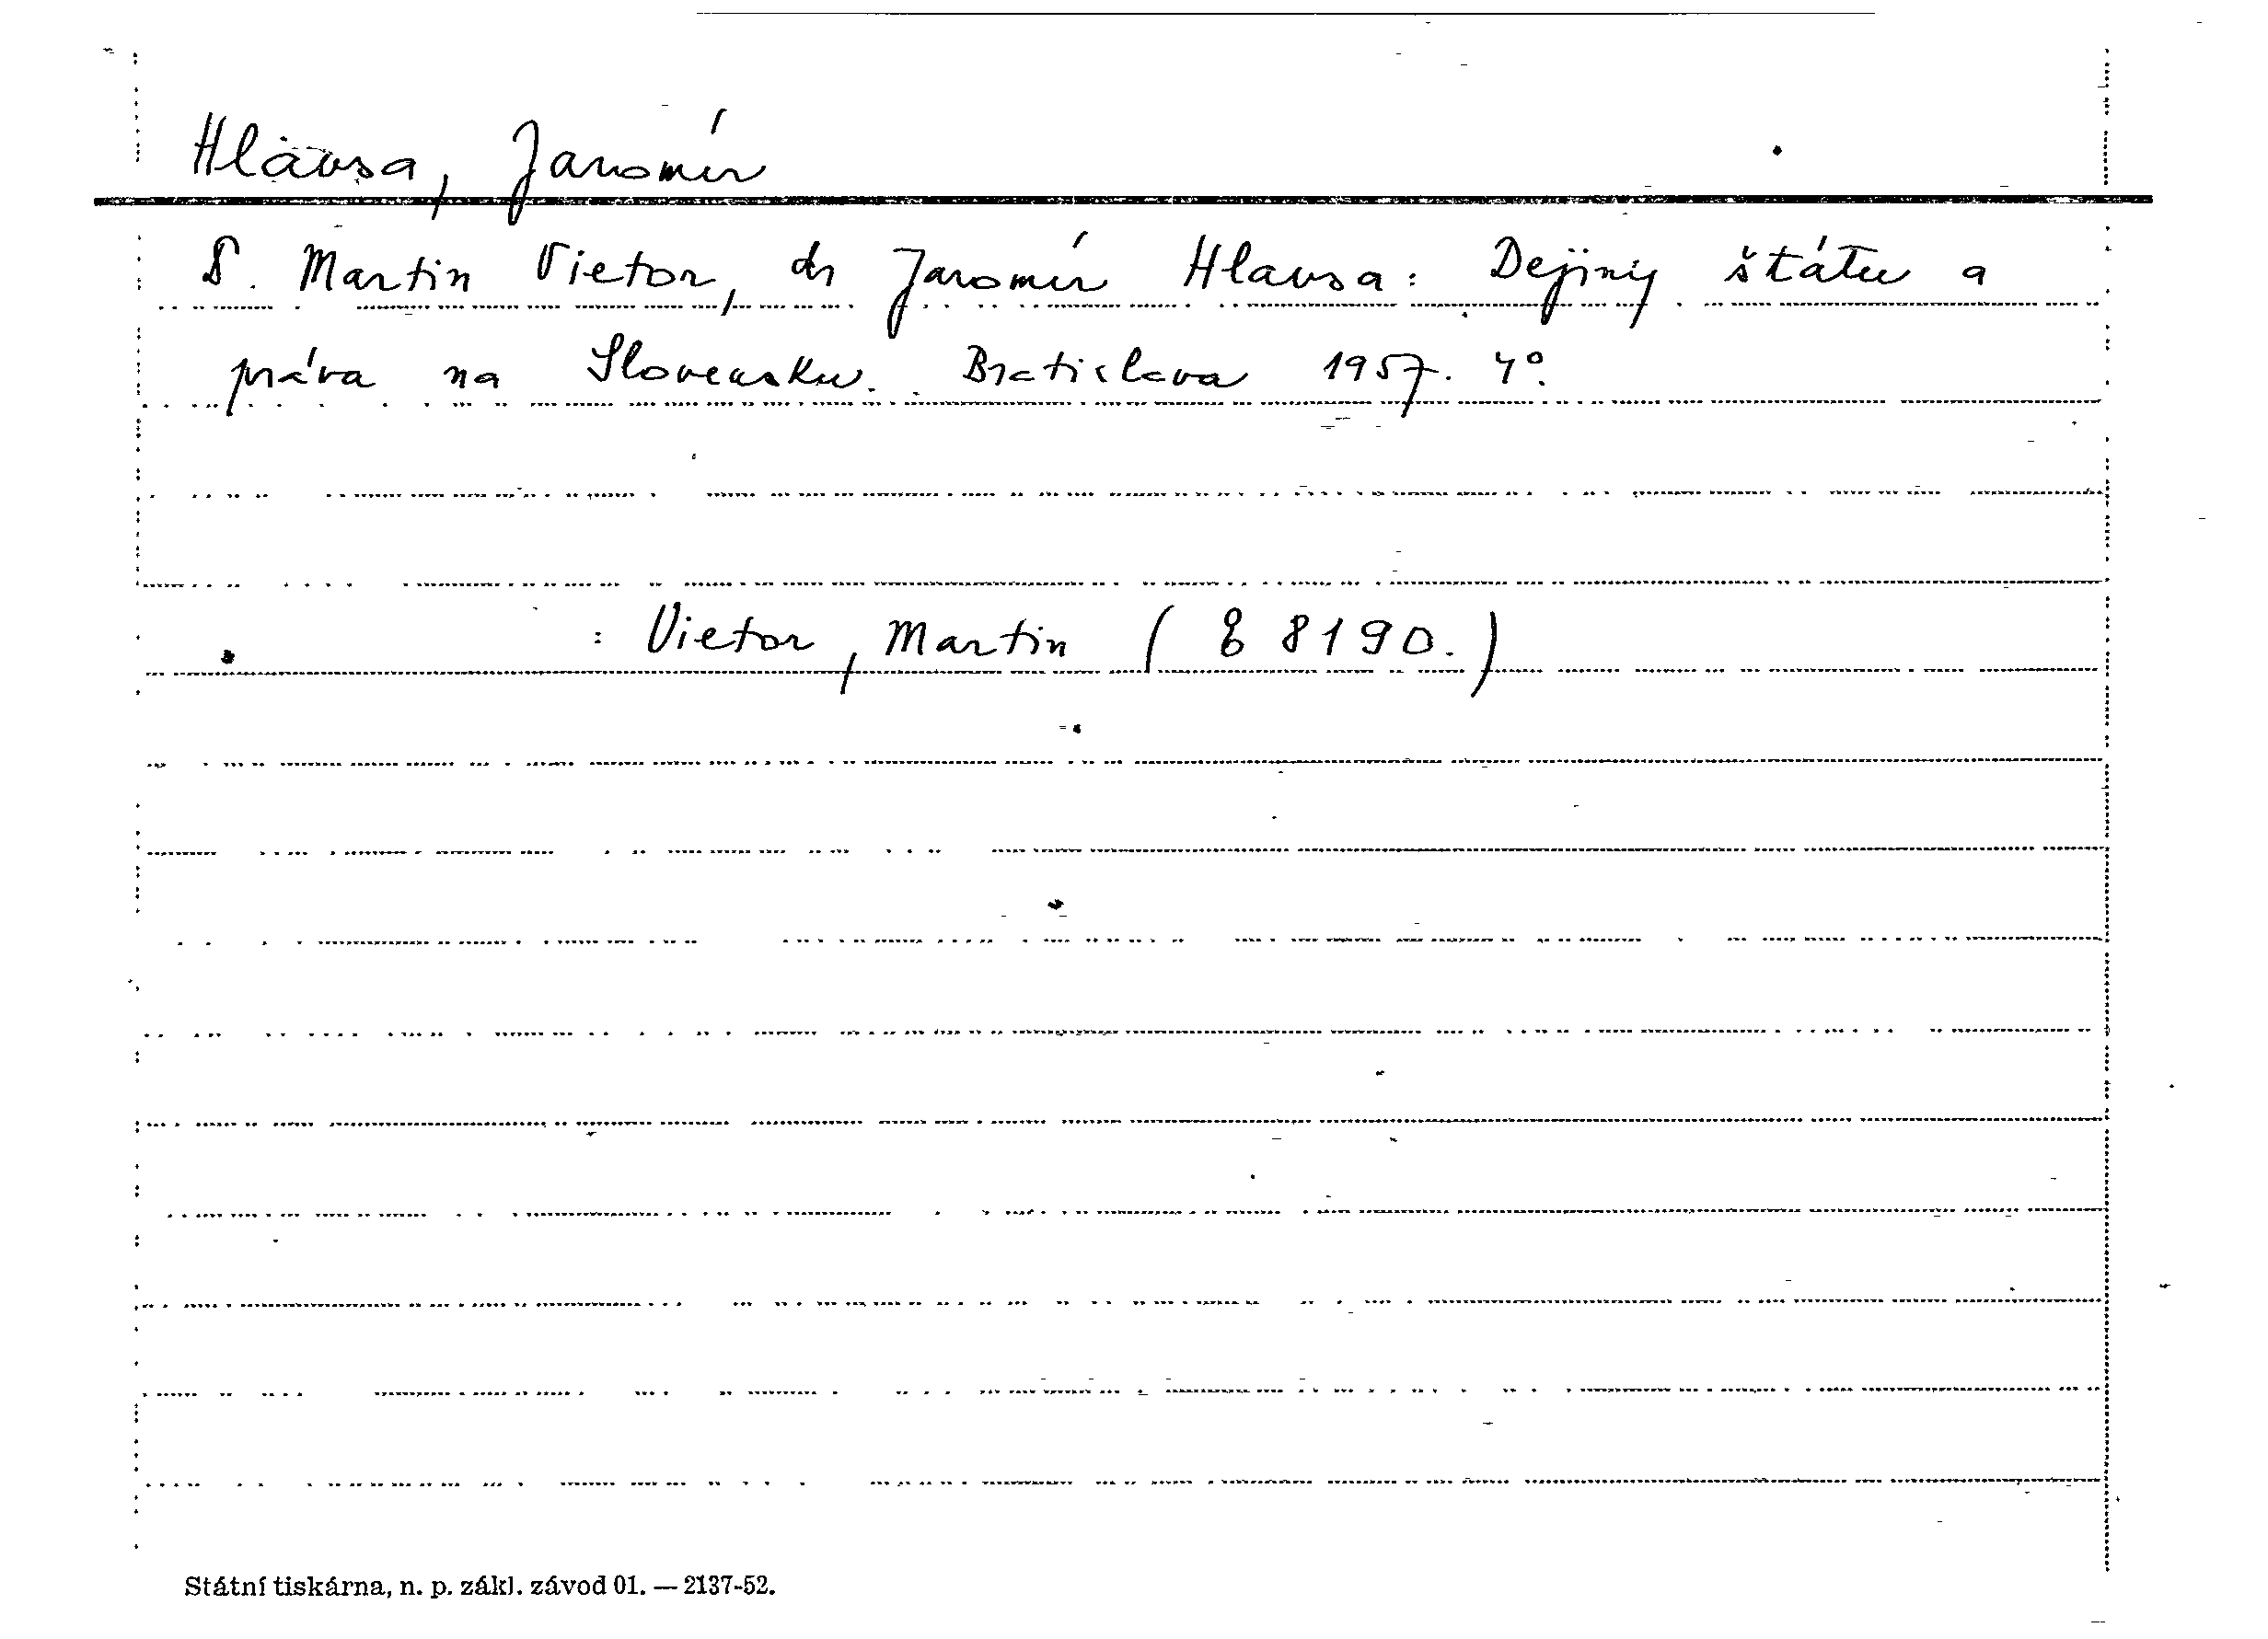 Hlavsa, Jaromír
Martin Vietor, dr Jaromír Hlavsa: Dejiny štátu a
práva na Slovensku. Bratislava 1957. 4°.
: Vietor, Martin ( 8190.)
Státní tiskárna, n. p. zákl. závod 01. — 2137-52.